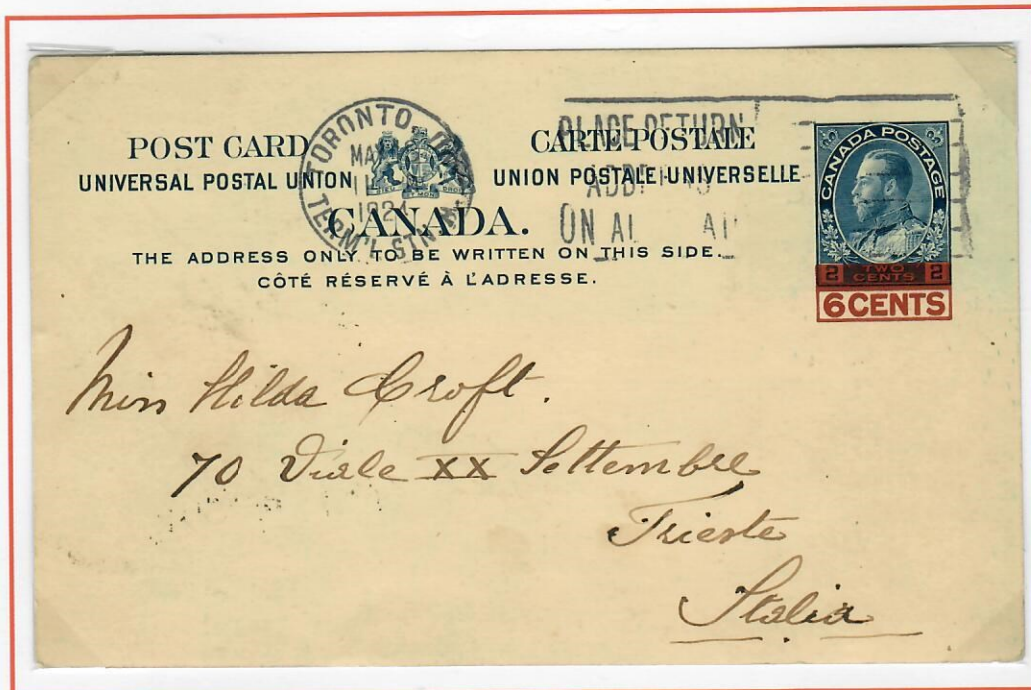 POST CARD
UNIVERSAL POSTAL UNION
CARTE POSTALE
UNION POSTALE UNIVERSELLE
CANADA.
THE ADDRESS ONLY TO BE WRITTEN ON THIS SIDE.
CÔTÉ RÉSERVÉ À L'ADRESSE.
TORONTO
1924
TERM'L STN
PLACE RETURN
ON
CANADA POSTAGE
2 TWO CENTS 2
6 CENTS
Miss Hilda Croft.
70 Viale XX Settembre
Trieste
Italia